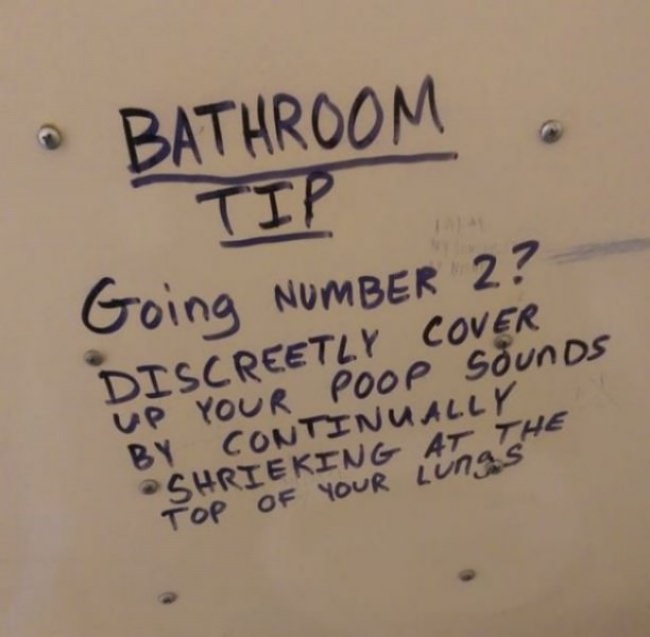 BATHROOM
TIP
Going NUMBER 2?
DISCREETLY COVER
UP YOUR POOP SOUNDS
BY CONTINUALLY
SHRIEKING AT THE
TOP OF YOUR LUNGS